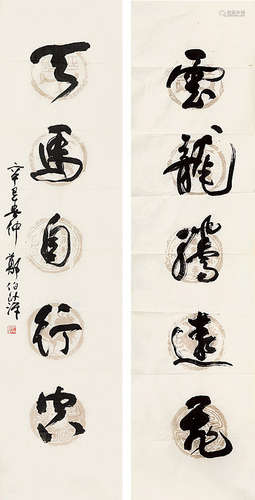 雲龍騰遠飛
天馬自行空
辛巳春仲 鄭伯萍